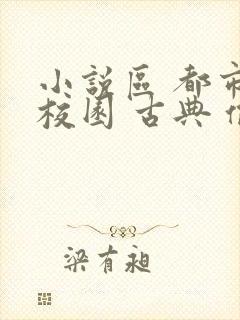 小說區 都市
校園 古典
梁有昶